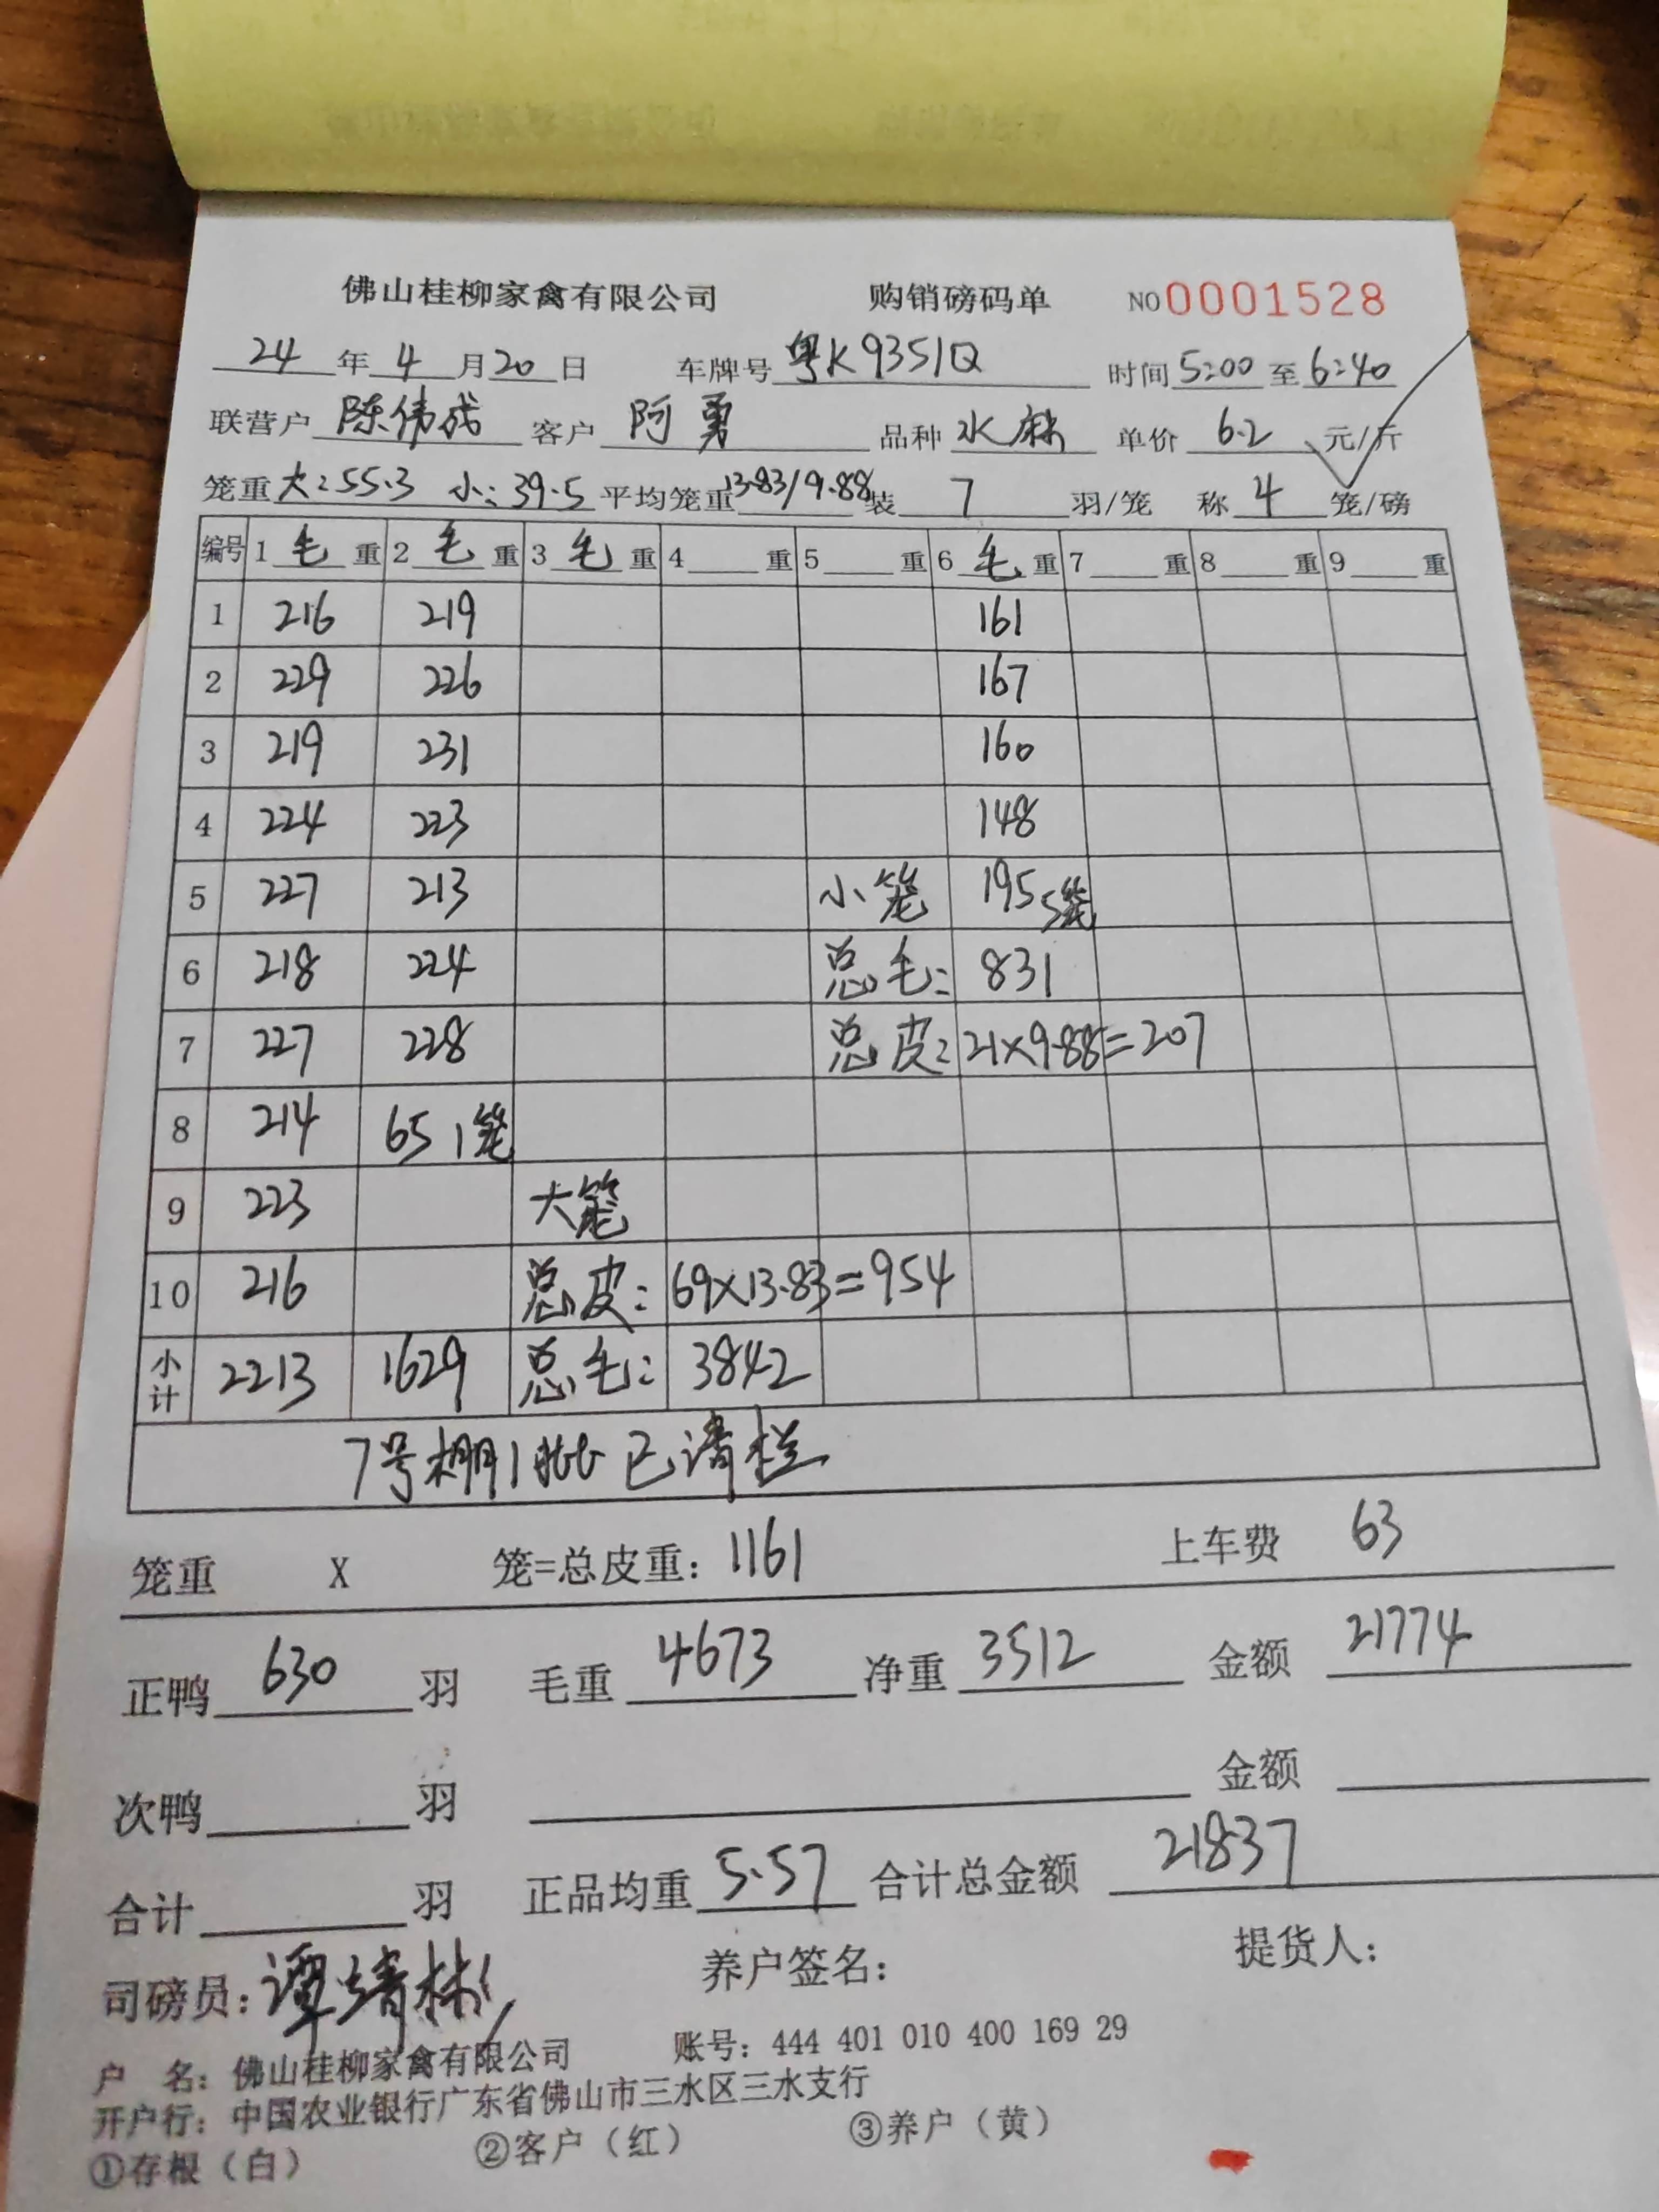 佛山桂柳家禽有限公司 购销磅码单 NO 0001528
24 年 4 月 20 日 车牌号 粤K9351Q 时间 5:00 至 6:40
联营户 陈伟成 客户 阿勇 品种 水麻 单价 6.2 元/斤
笼重 大:55.3 小:39.5 平均笼重 13.83/9.88 装 7 羽/笼 称 4 笼/磅
编号 1 毛 重 2 毛 重 3 毛 重 4 重 5 重 6 毛 重 7 重 8 重 9 重
1 216 219 161
2 229 226 167
3 219 231 160
4 224 223 148
5 227 213 小笼 195 5笼
6 218 224 总毛: 831
7 227 228 总皮: 21×9.88=207
8 214 65 1笼
9 223 大笼
10 216 总皮: 69×13.83=954
小计 2213 1629 总毛: 3842
7号棚1批已清栏
笼重 X 笼=总皮重: 1161 上车费 63
正鸭 630 羽 毛重 4673 净重 3512 金额 21774
次鸭 羽 金额
合计 羽 正品均重 5.57 合计总金额 21837
司磅员: 谭 养户签名: 提货人:
户 名: 佛山桂柳家禽有限公司 账号: 444 401 010 400 169 29
开户行: 中国农业银行广东省佛山市三水区三水支行
①存根(白) ②客户(红) ③养户(黄)